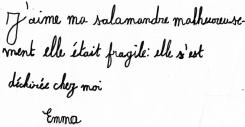 J'aime ma salamandre malheureuse-
ment elle était fragile: elle s'est
déchirée chez moi
Emma